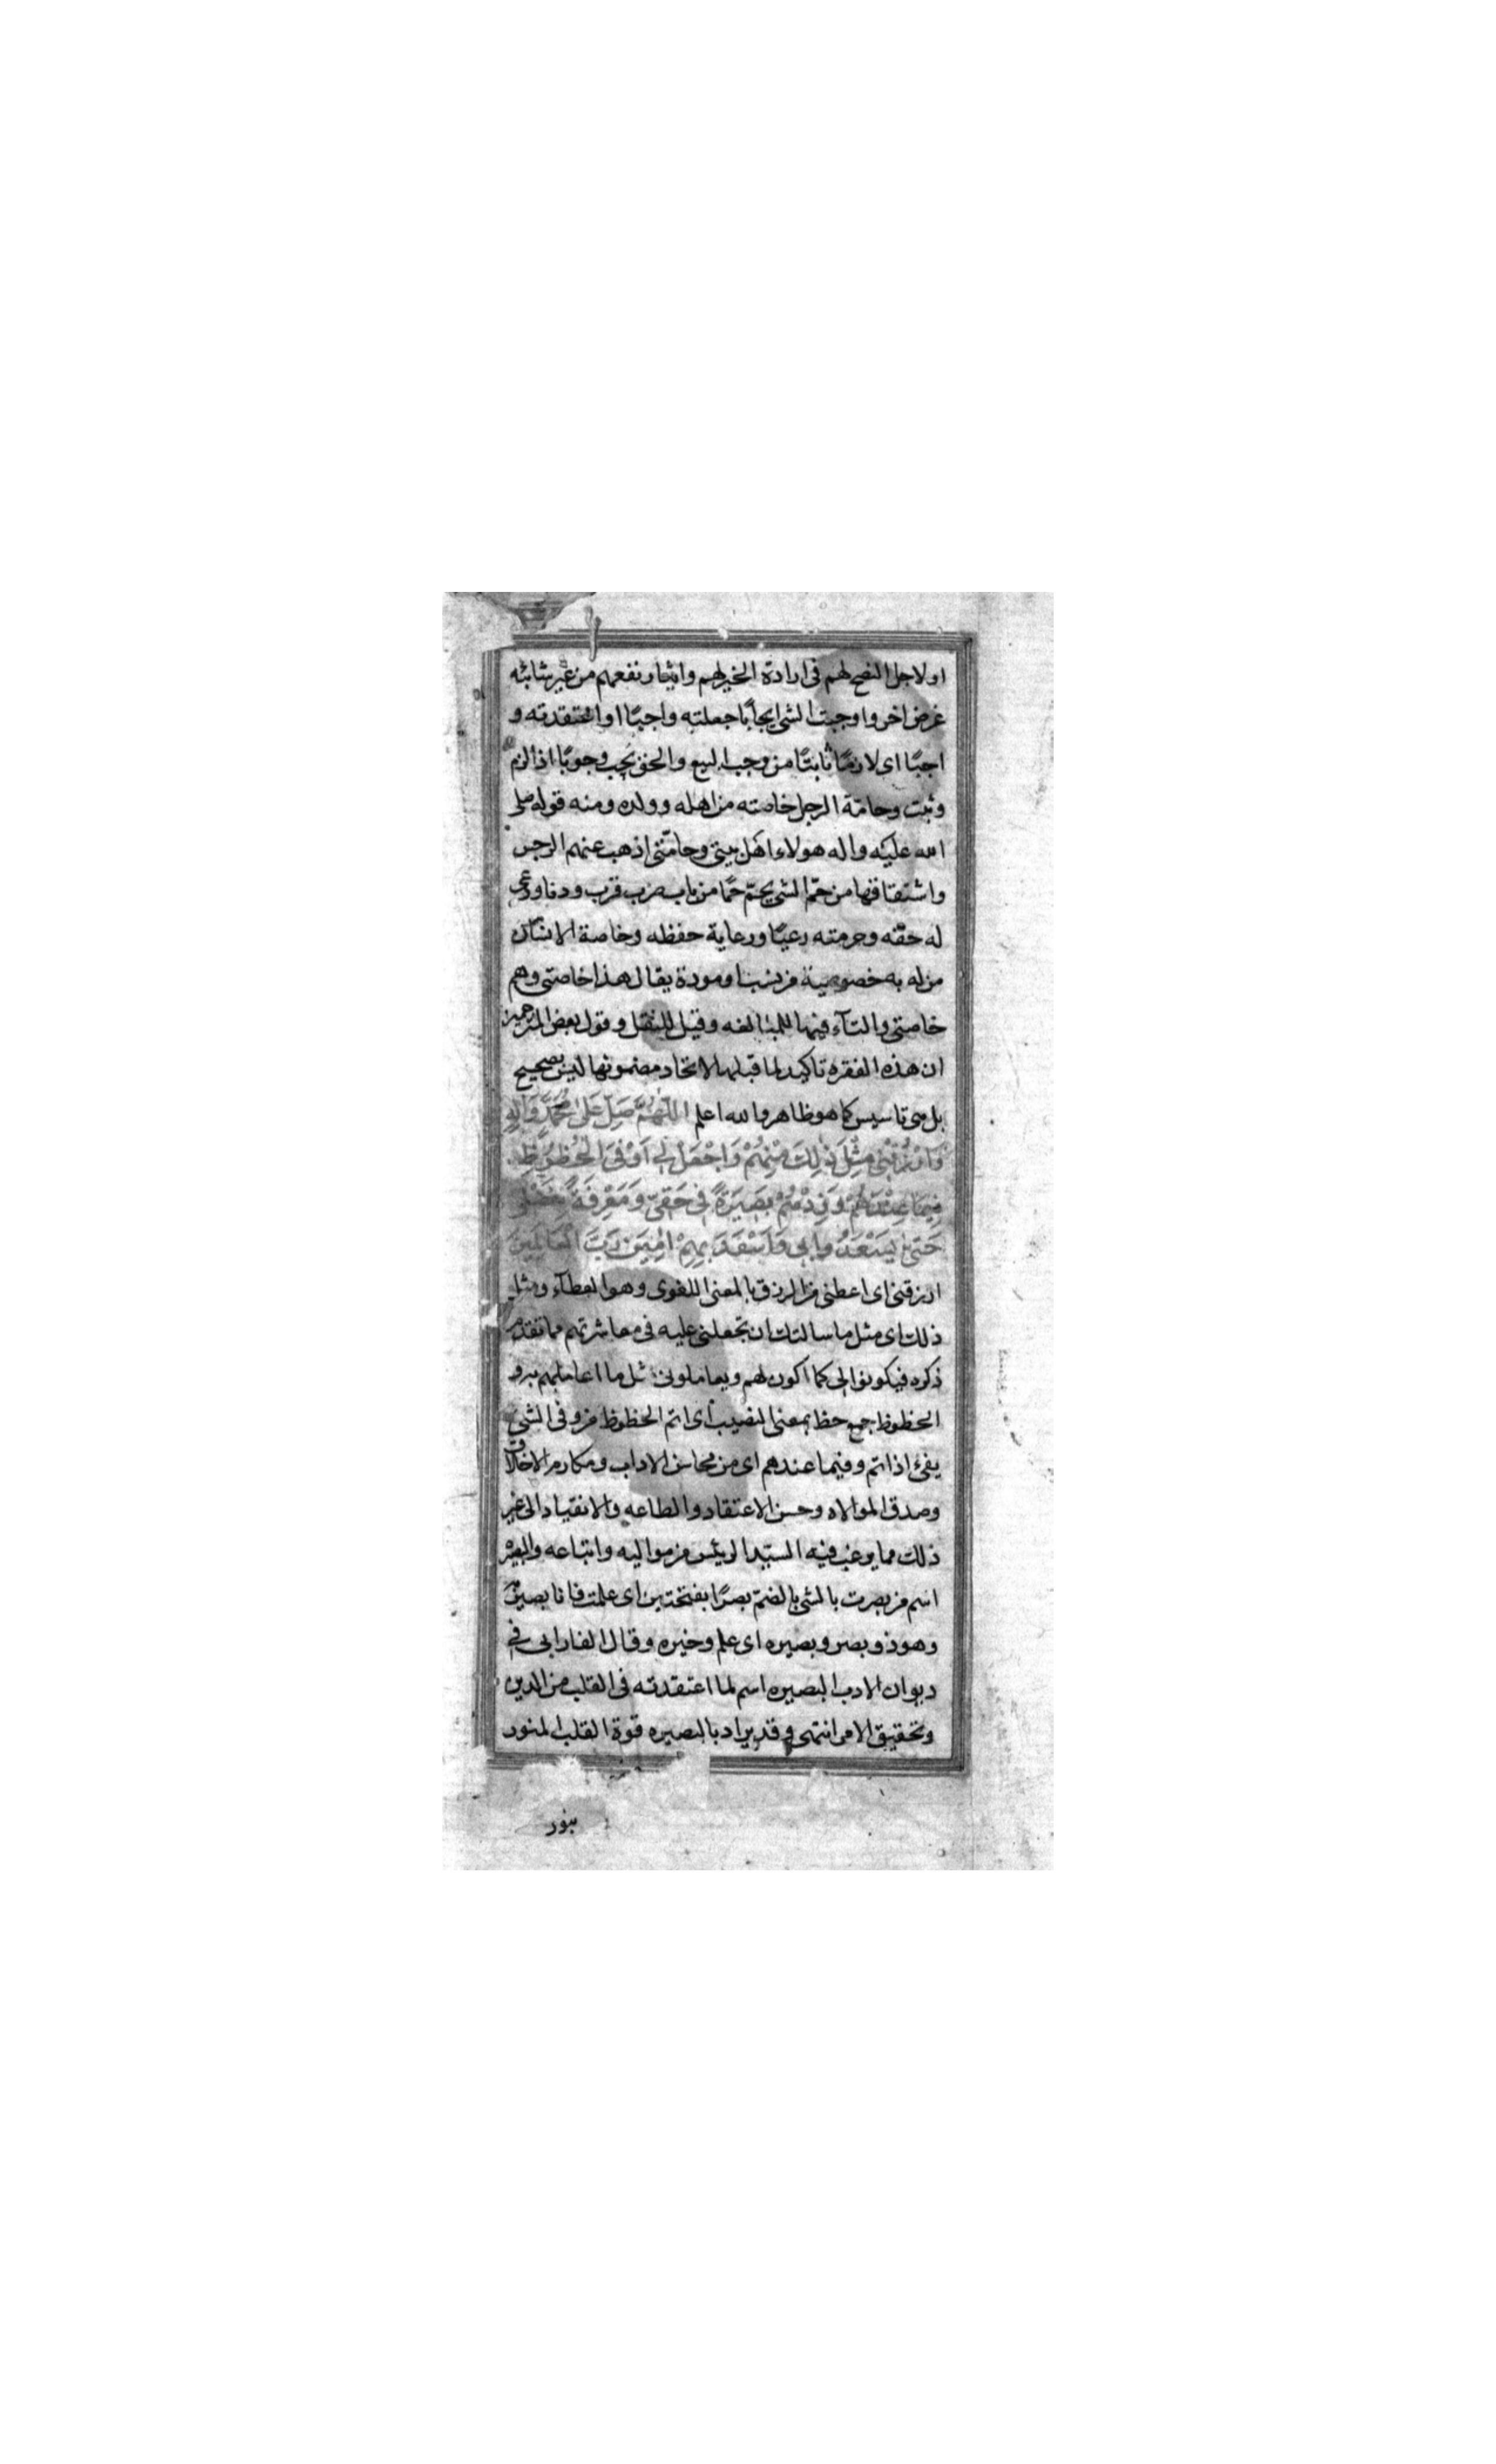 او لاجل النصح لهم فى ارادة الخير لهم وايثار نفعهم من غير شائبه
غرض اخر واوجبت الشى ايجابًا جعلته واجبًا او اعتقدته و
اجبًا اى لازمًا ثابتًا من وجب البيع والحق يجب وجوبًا اذا لزم
وثبت وحامّة الرجل خاصته من اهله وولده ومنه قوله صلى
الله عليه واله هولاء اهل بيتى وحامّتى اذهب عنهم الرجس
واشتقاقها من حمّ الشى يحمّ حمًا من باب ضرب قرب ودنا ورعى
له حقّه وحرمته رعيًا ورعاية حفظه وخاصة الانسان
من له به خصوصية من نسب او مودة يقال هذا خاصتى وهم
خاصتى والتآء فيها للمبالغه وقيل للنقل وقول بعض المترجمين
ان هذه الفقره تاكيد لما قبلها لاتحاد مضمونها ليس بصحيح
بل هى تاسيس كما هو ظاهر والله اعلم اللّٰهُمَّ صَلِّ عَلىٰ مُحَمَّدٍ وَاٰلِهِ
وَارْزُقْنى مِثْلَ ذٰلِكَ مِنْهُمْ وَاجْعَلْ لى اَوْفَى الْحُظُوظِ
فِيمَا عِنْدَهُمْ وَزِدْهُمْ بَصِيَرَةً فى حَقّى وَمَعْرِفَةً بِفَضْلى
حَتّىٰ يَسْعَدُوا بى وَاَسْعَدَ بِهِمْ اٰمِيَن رَبَّ الْعَالَمِينَ
ارزقنى اى اعطنى من الرزق بالمعنى اللغوى وهو العطآء ومثل
ذلك اى مثل ما سالتك ان تجعلنى عليه فى معاشرتهم مما تقدم
ذكره فيكونوا لى كما اكون لهم ويعاملونى مثل ما اعاملهم به و
الحظوظ جمع حظ بمعنى النصيب اى اتم الحظوظ من وفى الشى
يفى اذا تم وفيما عندهم اى من محاسن الاداب ومكارم الاخلاق
وصدق الموالاه وحسن الاعتقاد والطاعه والانقياد الى غير
ذلك مما يرغب فيه السيّد الرئيس من مواليه واتباعه والبصيرة
اسم من بصرت بالشى بالضمّ بصرًا بفتحتين اى علمت فانا بصير
وهو ذو بصر وبصيره اى علم وخبره وقال الفارابى فى
ديوان الادب البصيره اسم لما اعتقدته فى القلب من الدين
وتحقيق الامر انتهى وقد يراد بالبصيره قوة القلب المنور
بنور